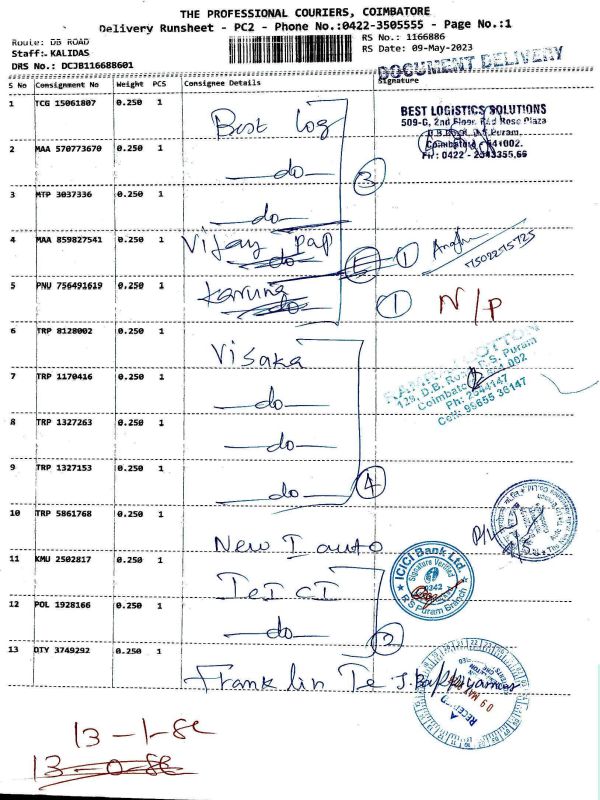 THE PROFESSIONAL COURIERS, COIMBATORE
Delivery Runsheet - PC2 - Phone No.:0422-3505555 - Page No.:1
Route: DB ROAD
RS No.: 1166886
Staff: KALIDAS
RS Date: 09-May-2023
DRS No.: DCJB116688601
DOCUMENT DELIVERY
S No Consignment No Weight PCS Consignee Details Signature
1 TCG 15061807 0.250 1 Best log
BEST LOGISTICS SOLUTIONS
509-G, 2nd Floor, Red Rose Plaza
D.B.Road, R.S.Puram,
Coimbatore - 641002.
PH : 0422 - 2543355,66
2 MAA 570773670 0.250 1 do
3
3 MTP 3037336 0.250 1 do
4 MAA 859827541 0.250 1 Vijay pap
do
1
7502275725
5 PNU 756491619 0.250 1 Karuna
do
1 N/P
6 TRP 8128002 0.250 1 Visaka
COTTON
129, D.B. Road, R.S. Puram
Coimbatore 641 002
Ph: 2544147
Cell: 98655 36147
7 TRP 1170416 0.250 1 do
8 TRP 1327263 0.250 1 do
9 TRP 1327153 0.250 1 do
4
10 TRP 5861768 0.250 1 New I auto
11 KMU 2502817 0.250 1 IcI cI
ICICI Bank Ltd.
Signature Verified
0342
R S Puram Branch
12 POL 1928166 0.250 1 do
2
13 DTY 3749292 0.250 1 Franklin Te
RECEIVED
09 MAY
13-1-82
13-0-82